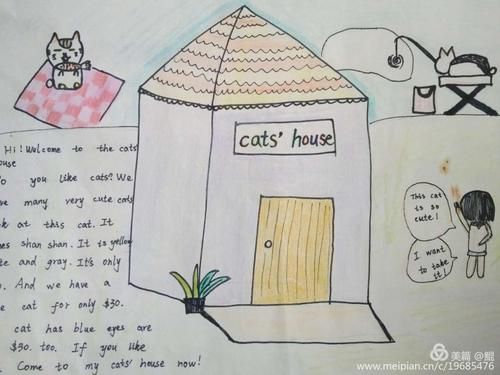 cats' house
Hi! Welcome to the cats'
ouse
o you like cats? We
ve many very cute cats
ok at this cat. It
es shan shan. It is yellow
te and gray. It's only
. And we have a
e cat for only $30.
cat has blue eyes are
$30. too. If you like
. Come to my cats' house now!
This cat
is so
cute!
I want
to take
it!
美篇 @鲲
www.meipian.cn/c/19685476